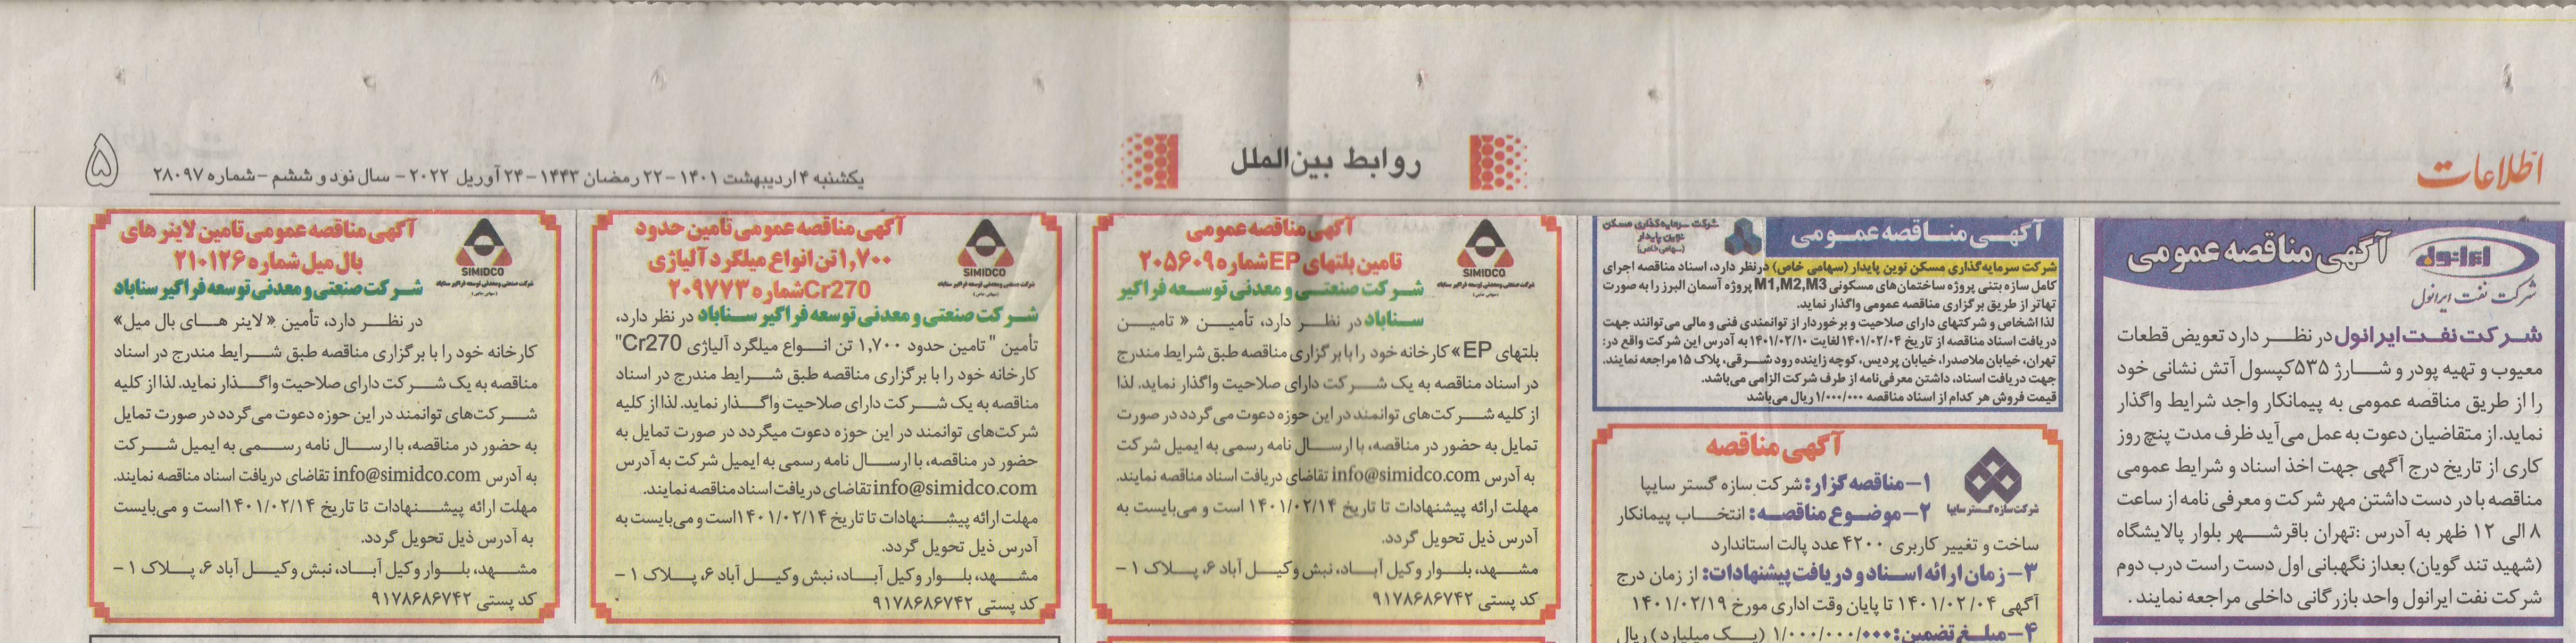 اطلاعات
روابط بین‌الملل
یکشنبه ۴ اردیبهشت ۱۴۰۱ – ۲۲ رمضان ۱۴۴۳ – ۲۴ آوریل ۲۰۲۲ – سال نود و ششم – شماره ۲۸۰۹۷
۵
ایرانول
شرکت نفت ایرانول
آگهی مناقصه عمومی
شرکت نفت ایرانول در نظر دارد تعویض قطعات
معیوب و تهیه پودر و شارژ ۵۳۵ کپسول آتش نشانی خود
را از طریق مناقصه عمومی به پیمانکار واجد شرایط واگذار
نماید. از متقاضیان دعوت به عمل می‌آید ظرف مدت پنج روز
کاری از تاریخ درج آگهی جهت اخذ اسناد و شرایط عمومی
مناقصه با در دست داشتن مهر شرکت و معرفی نامه از ساعت
۸ الی ۱۲ ظهر به آدرس : تهران باقرشهر بلوار پالایشگاه
(شهید تند گویان) بعداز نگهبانی اول دست راست درب دوم
شرکت نفت ایرانول واحد بازرگانی داخلی مراجعه نمایند .
آگهی مناقصه عمومی
شرکت سرمایه‌گذاری مسکن
نوین پایدار
(سهامی خاص)
شرکت سرمایه‌گذاری مسکن نوین پایدار (سهامی خاص) درنظر دارد، اسناد مناقصه اجرای
کامل سازه بتنی پروژه ساختمان‌های مسکونی M1,M2,M3 پروژه آسمان البرز را به صورت
تهاتر از طریق برگزاری مناقصه عمومی واگذار نماید.
لذا اشخاص و شرکتهای دارای صلاحیت و برخوردار از توانمندی فنی و مالی می‌توانند جهت
دریافت اسناد مناقصه از تاریخ ۱۴۰۱/۰۲/۰۴ لغایت ۱۴۰۱/۰۲/۱۰ به آدرس این شرکت واقع در:
تهران، خیابان ملاصدرا، خیابان پردیس، کوچه زاینده رود شرقی، پلاک ۱۵ مراجعه نمایند.
جهت دریافت اسناد، داشتن معرفی‌نامه از طرف شرکت الزامی می‌باشد.
قیمت فروش هر کدام از اسناد مناقصه ۱/۰۰۰/۰۰۰ ریال می‌باشد
آگهی مناقصه
شرکت سازه گستر سایپا
۱– مناقصه گزار: شرکت سازه گستر سایپا
۲– موضوع مناقصه: انتخاب پیمانکار
ساخت و تغییر کاربری ۴۲۰۰ عدد پالت استاندارد
۳– زمان ارائه اسناد و دریافت پیشنهادات: از زمان درج
آگهی ۱۴۰۱/۰۲/۰۴ تا پایان وقت اداری مورخ ۱۴۰۱/۰۲/۱۹
۴– مبلغ تضمین: ۱/۰۰۰/۰۰۰/۰۰۰ (یک میلیارد) ریال
SIMIDCO
شرکت صنعتی و معدنی توسعه فراگیر سناباد
(سهامی خاص)
آگهی مناقصه عمومی
تامین بلتهای EP شماره ۲۰۵۶۰۹
شرکت صنعتی و معدنی توسعه فراگیر
سناباد در نظر دارد، تأمین « تامین
بلتهای EP» کارخانه خود را با برگزاری مناقصه طبق شرایط مندرج
در اسناد مناقصه به یک شرکت دارای صلاحیت واگذار نماید. لذا
از کلیه شرکت‌های توانمند در این حوزه دعوت می گردد در صورت
تمایل به حضور در مناقصه، با ارسال نامه رسمی به ایمیل شرکت
به آدرس info@simidco.com تقاضای دریافت اسناد مناقصه نمایند.
مهلت ارائه پیشنهادات تا تاریخ ۱۴۰۱/۰۲/۱۴ است و می‌بایست به
آدرس ذیل تحویل گردد.
مشهد، بلوار وکیل آباد، نبش وکیل آباد ۶، پلاک ۱ –
کد پستی ۹۱۷۸۶۸۶۷۴۲
SIMIDCO
شرکت صنعتی و معدنی توسعه فراگیر سناباد
(سهامی خاص)
آگهی مناقصه عمومی تامین حدود
۱,۷۰۰ تن انواع میلگرد آلیاژی
Cr270 شماره ۲۰۹۷۷۳
شرکت صنعتی و معدنی توسعه فراگیر سناباد در نظر دارد،
تأمین " تامین حدود ۱,۷۰۰ تن انواع میلگرد آلیاژی Cr270"
کارخانه خود را با برگزاری مناقصه طبق شرایط مندرج در اسناد
مناقصه به یک شرکت دارای صلاحیت واگذار نماید. لذا از کلیه
شرکت‌های توانمند در این حوزه دعوت میگردد در صورت تمایل به
حضور در مناقصه، با ارسال نامه رسمی به ایمیل شرکت به آدرس
info@simidco.com تقاضای دریافت اسناد مناقصه نمایند.
مهلت ارائه پیشنهادات تا تاریخ ۱۴۰۱/۰۲/۱۴ است و می‌بایست به
آدرس ذیل تحویل گردد.
مشهد، بلوار وکیل آباد، نبش وکیل آباد ۶، پلاک ۱ –
کد پستی ۹۱۷۸۶۸۶۷۴۲
SIMIDCO
شرکت صنعتی و معدنی توسعه فراگیر سناباد
(سهامی خاص)
آگهی مناقصه عمومی تامین لاینر های
بال میل شماره ۲۱۰۱۲۶
شرکت صنعتی و معدنی توسعه فراگیر سناباد
در نظر دارد، تأمین « لاینر های بال میل»
کارخانه خود را با برگزاری مناقصه طبق شرایط مندرج در اسناد
مناقصه به یک شرکت دارای صلاحیت واگذار نماید. لذا از کلیه
شرکت‌های توانمند در این حوزه دعوت می گردد در صورت تمایل
به حضور در مناقصه، با ارسال نامه رسمی به ایمیل شرکت
به آدرس info@simidco.com تقاضای دریافت اسناد مناقصه نمایند.
مهلت ارائه پیشنهادات تا تاریخ ۱۴۰۱/۰۲/۱۴ است و می‌بایست
به آدرس ذیل تحویل گردد.
مشهد، بلوار وکیل آباد، نبش وکیل آباد ۶، پلاک ۱ –
کد پستی ۹۱۷۸۶۸۶۷۴۲